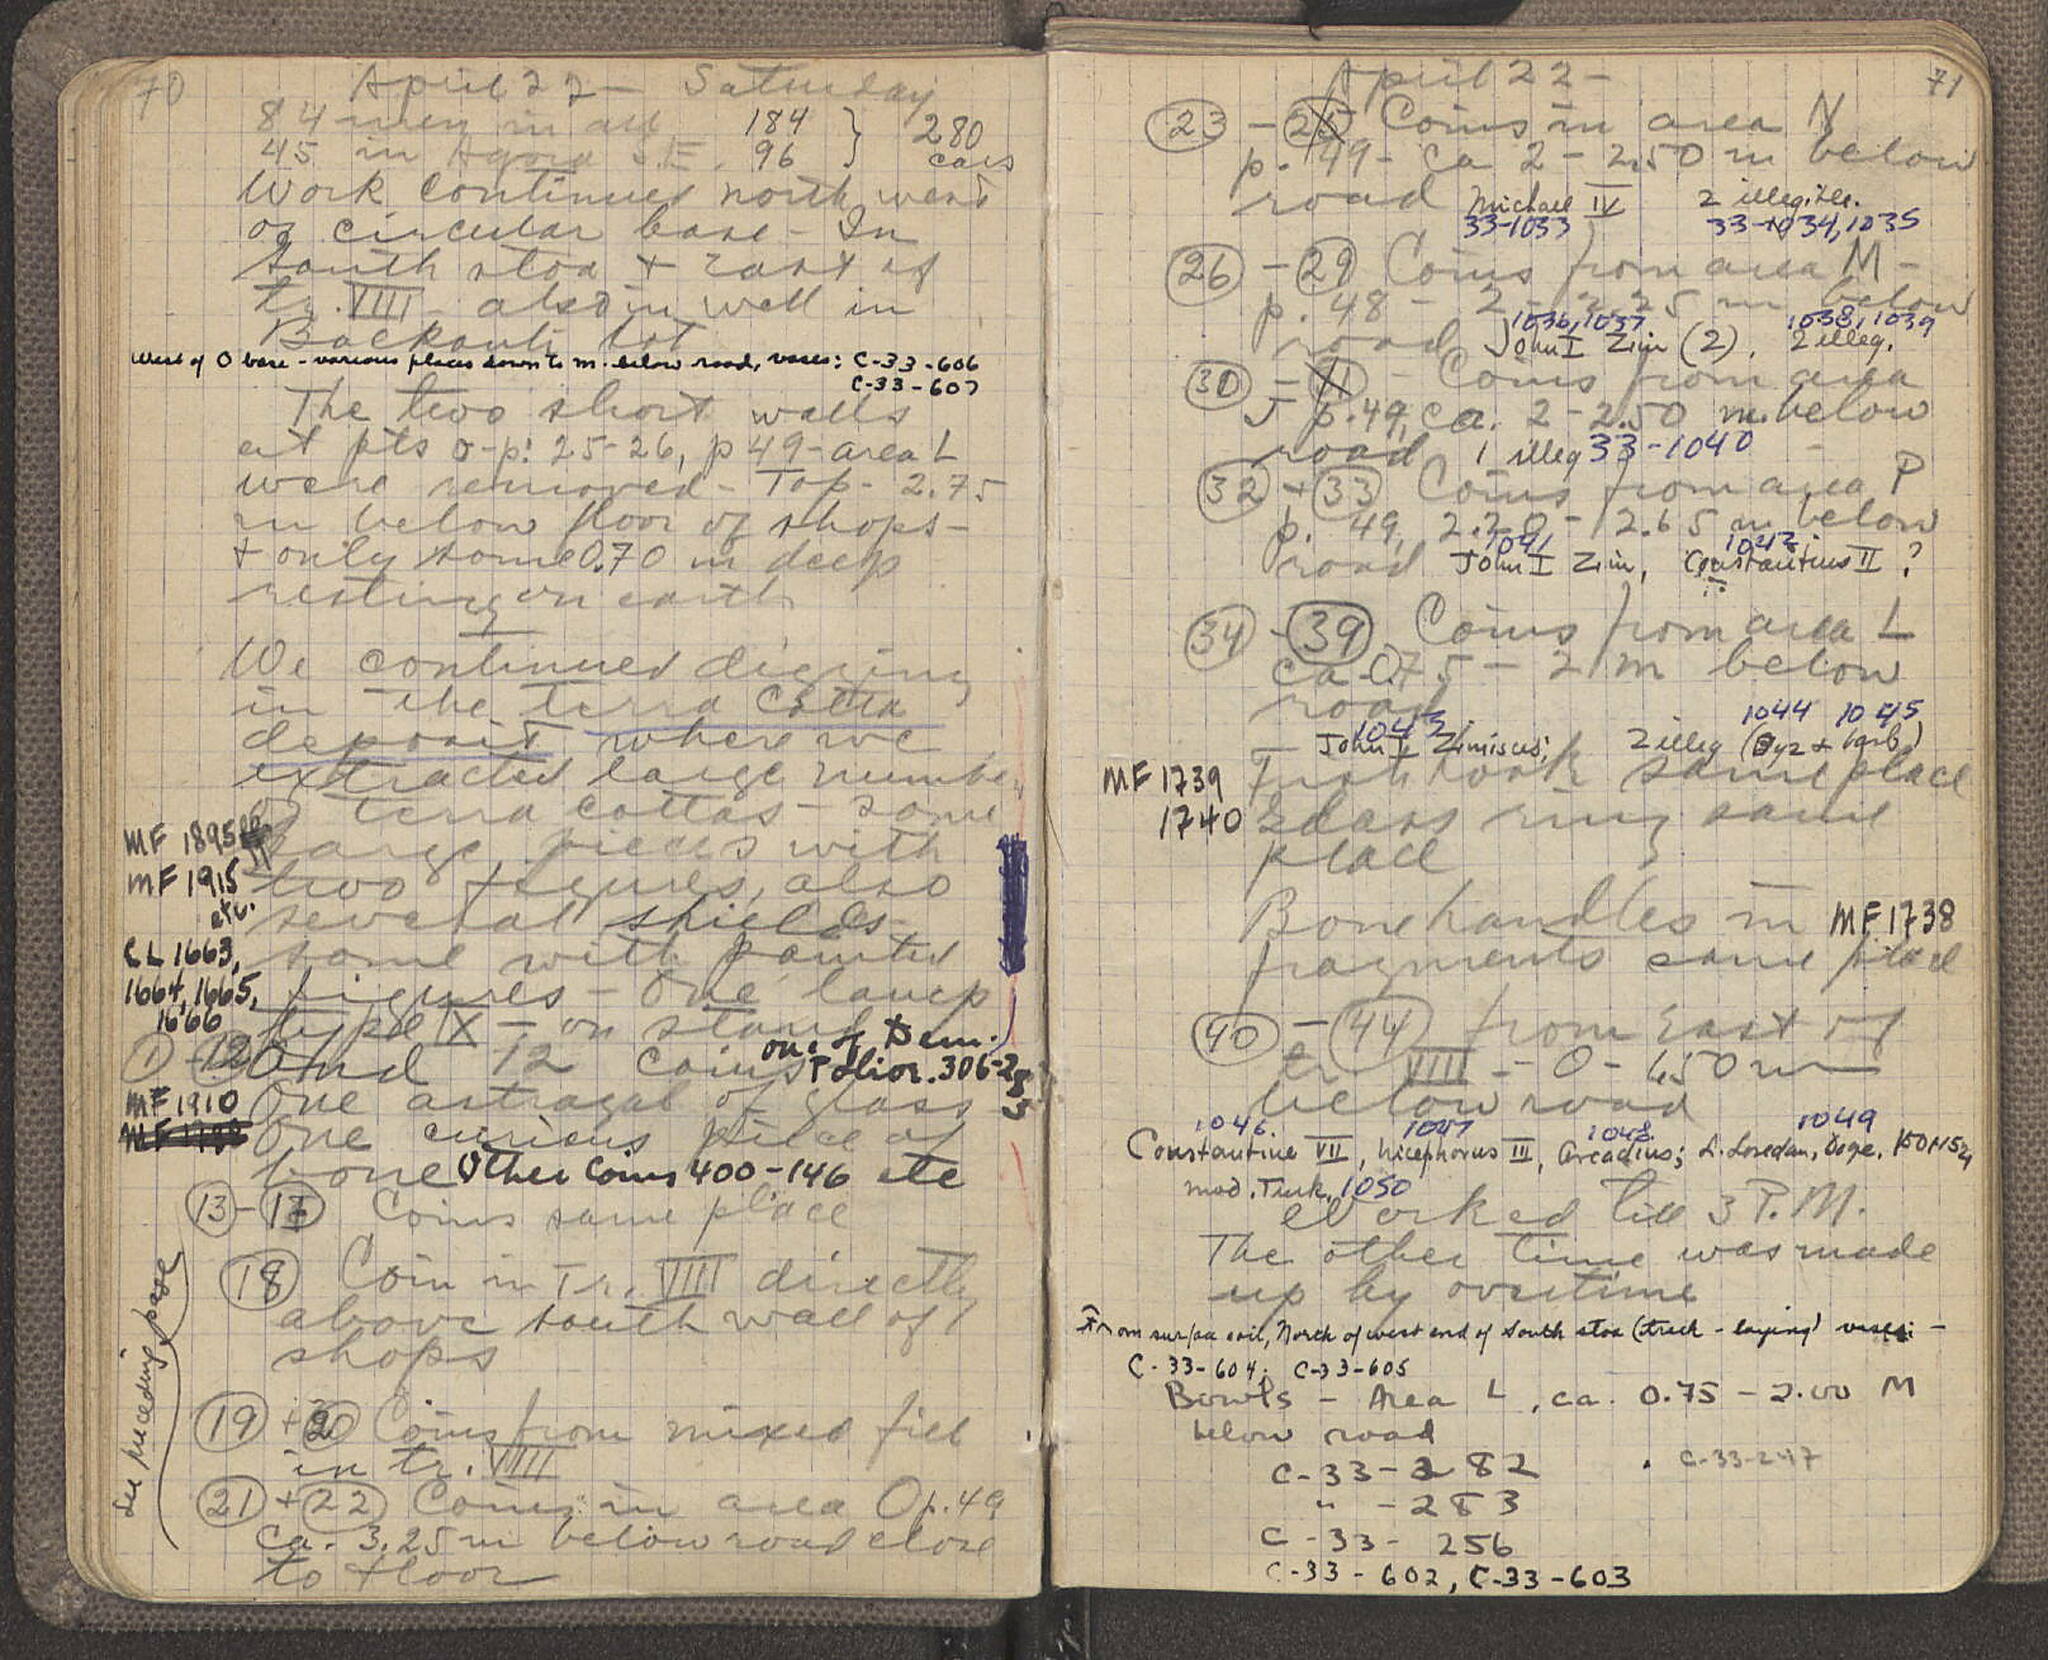 70
April 22 - Saturday
84 men in all 184 } 280
45 in Agora S.E. 96 } cars
Work continued north west
of circular base - In
South stoa + east of
tr. VIIII - also in well in
lot
West of O base - various places down to m. below road, vases: C-33-606
C-33-607
The two short walls
at pts o-p: 25-26, p 49 - area L
were removed - Top - 2.75
m below floor of shops -
+ only some 0.70 m deep
resting on earth
We continued digging
in the terra cotta
deposit where we
extracted large number
of terra cottas - some
MF 1895 large pieces with
MF 1915 two figures, also
etc. several shields
CL 1663, some with painted
1664, 1665, figures - One lamp
1666 type IX - on stand
① - 12 and 12 coins one of Dem. Polior. 306-283
MF 1910 One astragal of glass
One curious piece of
bone Other Coins 400-146 etc
13 - 17 Coins same place
18 Coin in Tr. VIIII directly
above south wall of
shops
19 + 20 Coins from mixed fill
in tr. VIIII
21 + 22 Coins in area O p. 49
ca. 3.25 m below road close
to floor
See preceding page
71
April 22 -
23 - 25 Coins in area N
p. 49 - ca 2 - 2.50 m below
road Michael IV 2 illegible.
33-1033 33-1034, 1035
26 - 29 Coins from area M -
p. 48 - 2 - 2.25 m below
1036, 1037 1038, 1039
road John I Zim (2), 2 illeg.
30 - Coins from area
J p. 49, ca. 2 - 2.50 m. below
road 1 illeg 33-1040
32 + 33 Coins from area P
p. 49, 2.20 - 2.65 m below
1041 1042
road John I Zim, Constantius II ?
34 - 39 Coins from area L
ca 0.75 - 2 m below
road
1043 1044 1045
John I Zimisces; 2 illeg (Byz + barb)
MF 1739 Fish hook same place
1740 Glass ring same
place
Bone handles in MF 1738
fragments same place
40 - 44 from East of
tr VIIII - 0 - 1.50 m
below road
1046 1047 1048 1049
Constantine VII, Nicephorus III, Arcadius; L. Loredan, Doge,
mod. Turk. 1050
Worked till 3 P.M.
The other time was made
up by overtime
From surface soil, North of west end of South stoa (track-laying) vases: -
C-33-604; C-33-605
Bowls - Area L, ca. 0.75 - 2.00 M
below road
C-33-282 C-33-247
" - 283
C-33-256
C-33-602, C-33-603